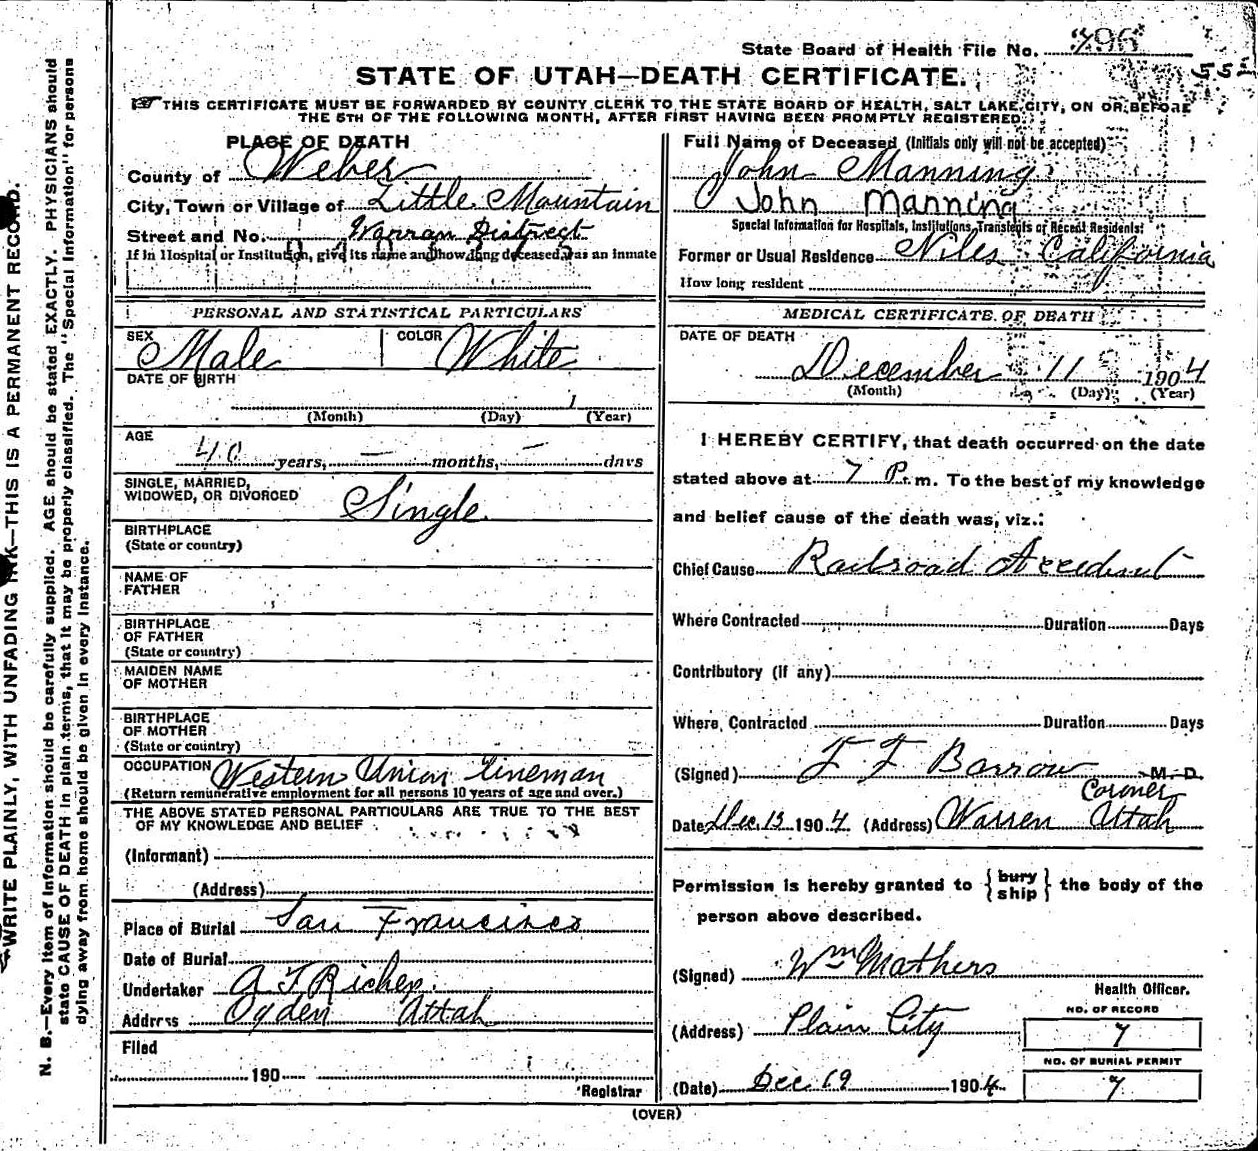 State Board of Health File No. 796
STATE OF UTAH—DEATH CERTIFICATE.
THIS CERTIFICATE MUST BE FORWARDED BY COUNTY CLERK TO THE STATE BOARD OF HEALTH, SALT LAKE CITY, ON OR BEFORE
THE 5TH OF THE FOLLOWING MONTH, AFTER FIRST HAVING BEEN PROMPTLY REGISTERED.
PLACE OF DEATH
County of Weber
City, Town or Village of Little Mountain
Street and No. Warran District
If in Hospital or Institution, give its name and how long deceased was an inmate
Full Name of Deceased (Initials only will not be accepted)
John Manning
John Manning
Special Information for Hospitals, Institutions, Transients or Recent Residents:
Former or Usual Residence Niles California
How long resident
PERSONAL AND STATISTICAL PARTICULARS
SEX Male COLOR White
DATE OF BIRTH
(Month) (Day) (Year)
AGE
40 years, — months, — days
SINGLE, MARRIED,
WIDOWED, OR DIVORCED Single
BIRTHPLACE
(State or country)
NAME OF
FATHER
BIRTHPLACE
OF FATHER
(State or country)
MAIDEN NAME
OF MOTHER
BIRTHPLACE
OF MOTHER
(State or country)
OCCUPATION Western Union Lineman
(Return remunerative employment for all persons 10 years of age and over.)
THE ABOVE STATED PERSONAL PARTICULARS ARE TRUE TO THE BEST
OF MY KNOWLEDGE AND BELIEF
(Informant)
(Address)
Place of Burial San Francisco
Date of Burial
Undertaker A T Richey
Address Ogden Uttah
Filed
190
Registrar
MEDICAL CERTIFICATE OF DEATH
DATE OF DEATH
December 11 1904
(Month) (Day) (Year)
I HEREBY CERTIFY, that death occurred on the date
stated above at 7 P. m. To the best of my knowledge
and belief cause of the death was, viz.:
Chief Cause Railroad Accident
Where Contracted Duration Days
Contributory (if any)
Where Contracted Duration Days
(Signed) F F Barrow M. D.
Coroner
Date Dec 13 1904 (Address) Warren Uttah
Permission is hereby granted to { bury ship } the body of the
person above described.
(Signed) Wm Mathers
Health Officer.
(Address) Plain City
NO. OF RECORD
7
NO. OF BURIAL PERMIT
7
(Date) Dec 19 1904
(OVER)
WRITE PLAINLY, WITH UNFADING INK—THIS IS A PERMANENT RECORD.
N. B.—Every item of information should be carefully supplied. AGE should be stated EXACTLY. PHYSICIANS should
state CAUSE OF DEATH in plain terms, that it may be properly classified. The "Special Information" for persons
dying away from home should be given in every instance.